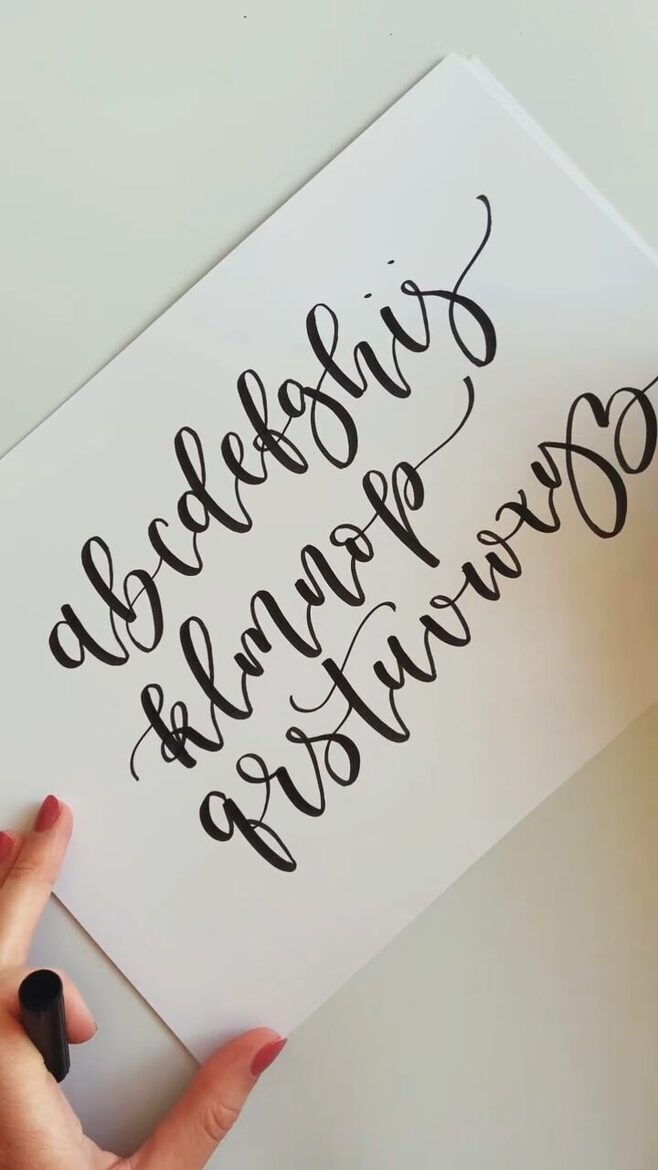 abcdefghij
klmnop
qrstuvwxyz